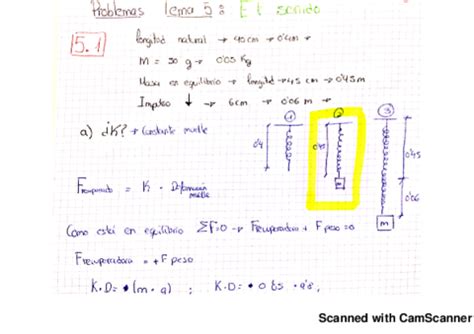 Problemas Tema 5: El sonido
5.1
longitud natural → 40 cm → 0'4m
M = 50 g → 0'05 Kg
Masa en equilibrio → longitud → 45 cm → 0'45m
Impulso ↓ → 6cm → 0'06 m
a) ¿K? → Constante muelle
1 2 3
0'4 0'45 0'45
0'06
m
Frecuperadora = K · Deformación muelle
Como está en equilibrio ΣF=0 → Frecuperadora + F peso = 0
Frecuperadora = + F peso
K·D = (m·a) ; K·D =
Scanned with CamScanner